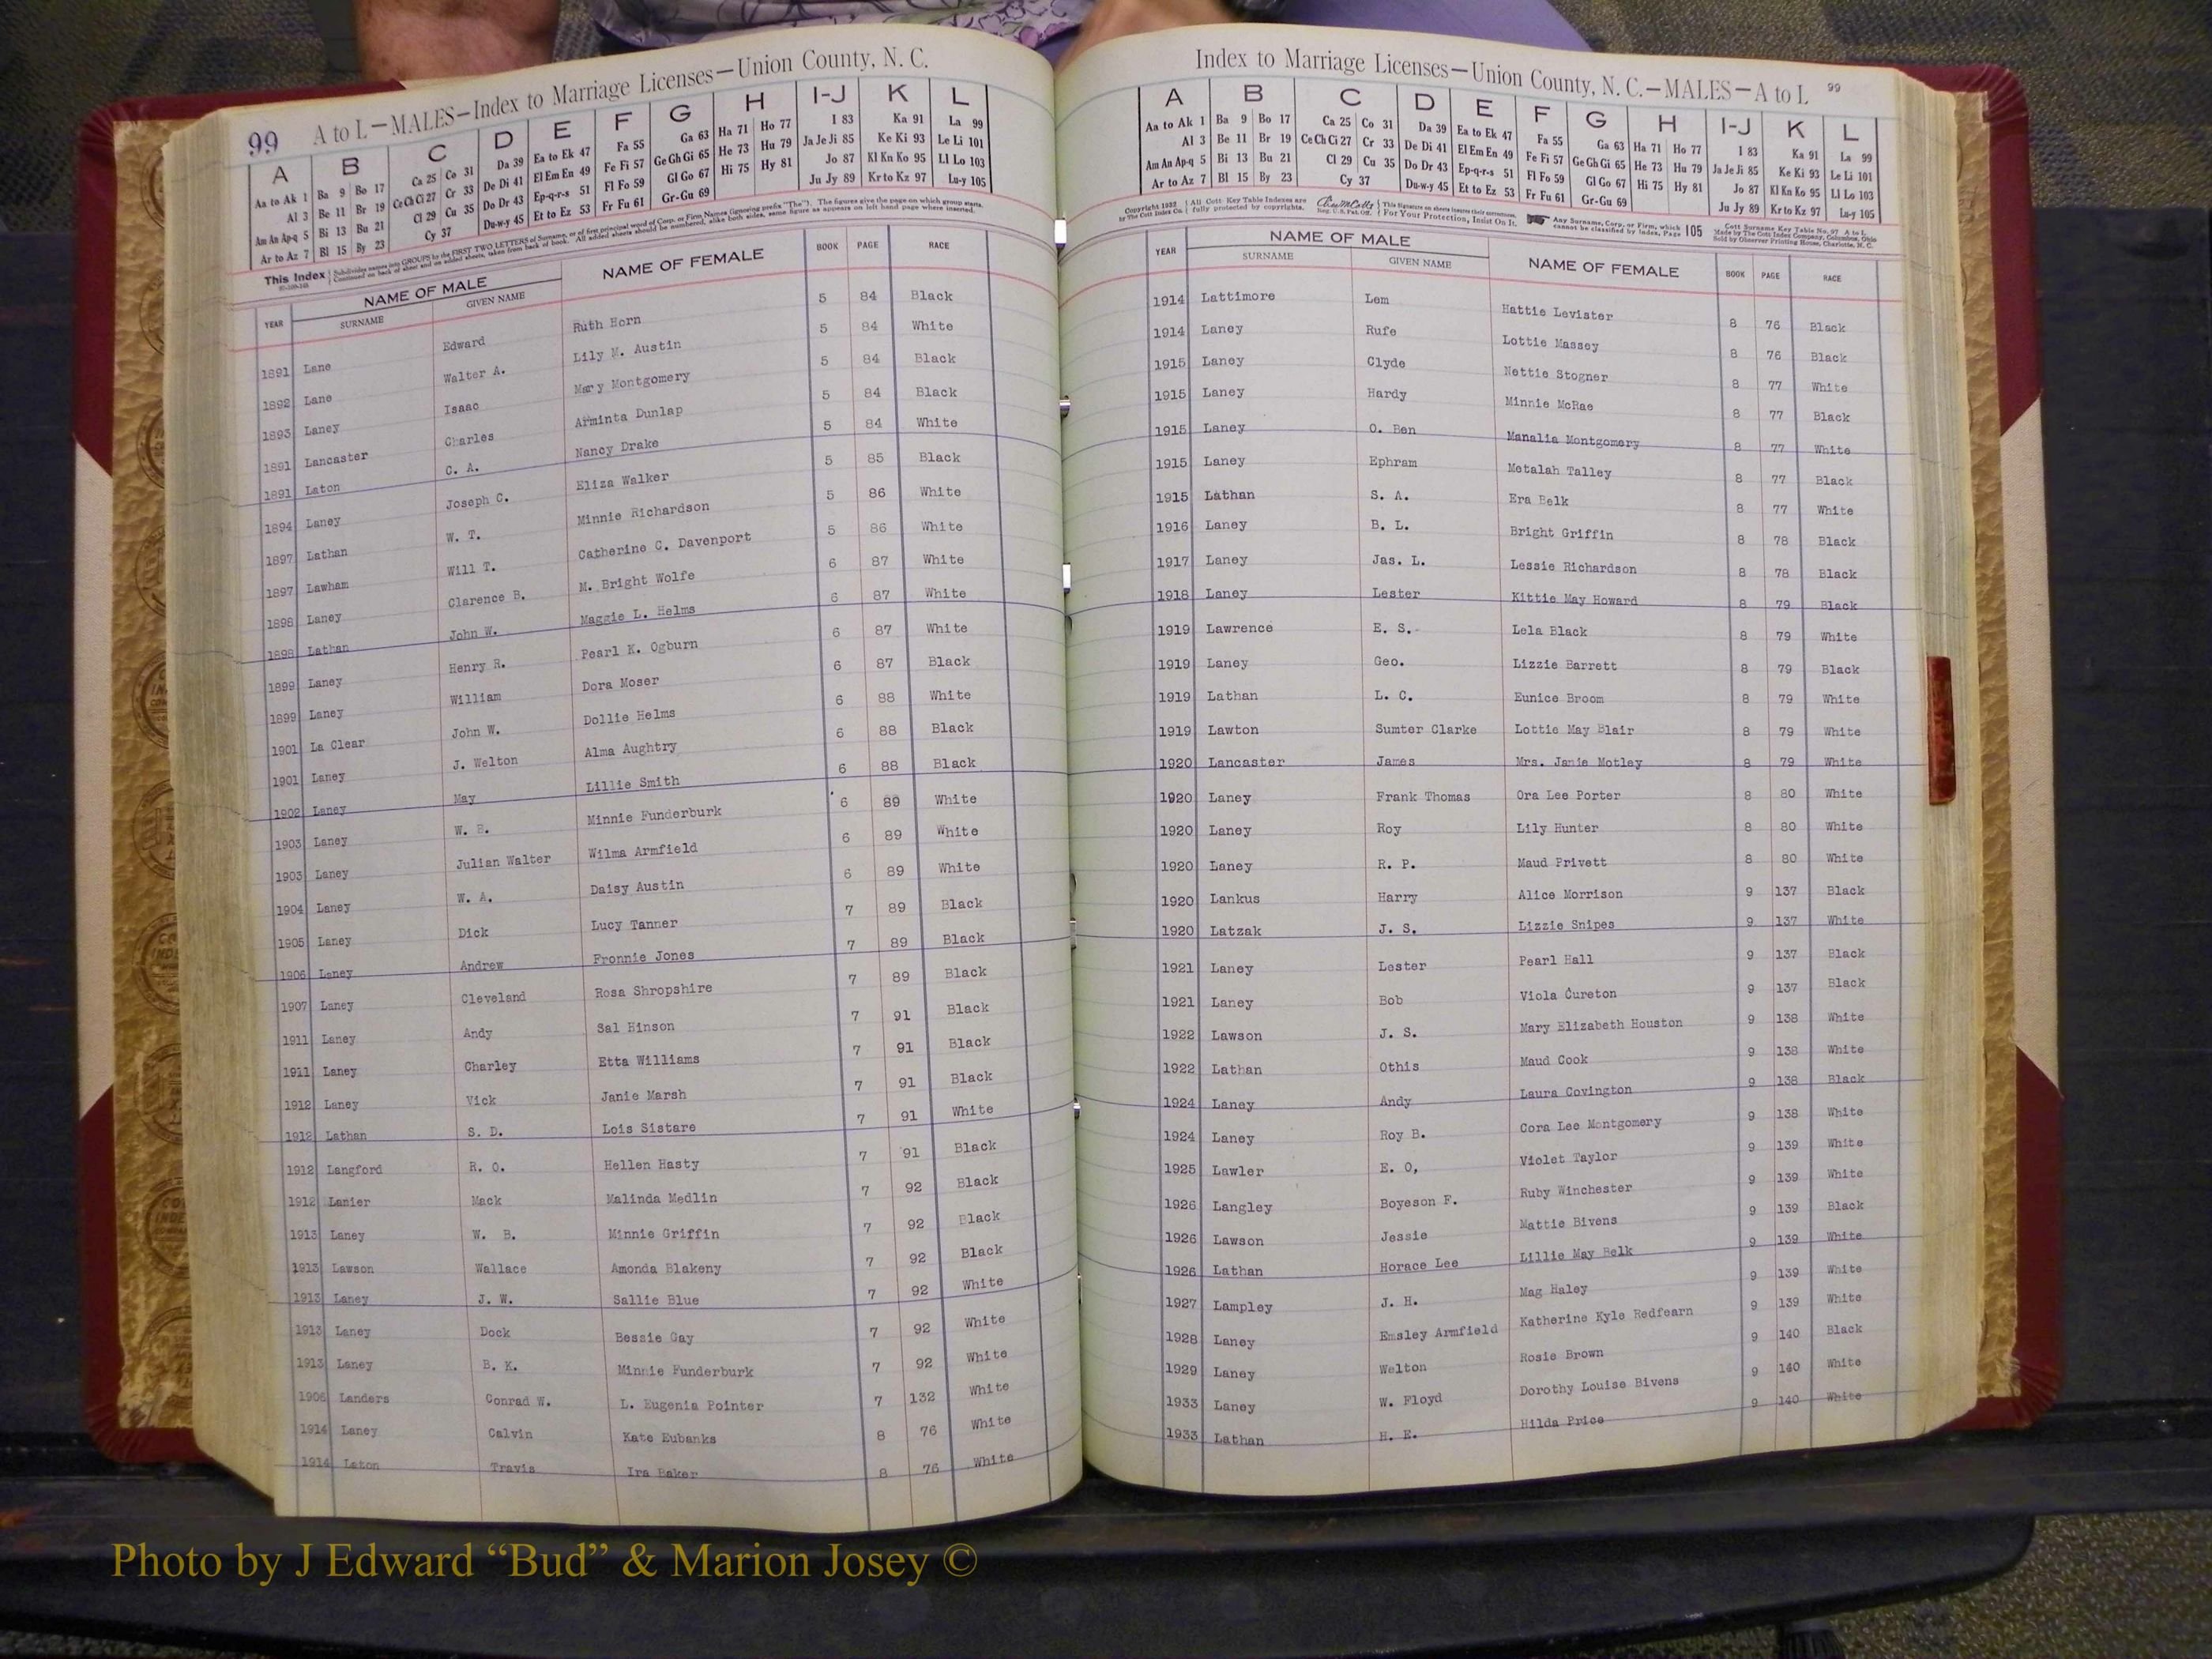 99 A to L—MALES—Index to Marriage Licenses—Union County, N. C.
A B C D E F G H I-J K L
Aa to Ak 1 Ba 9 Bo 17 Ca 25 Co 31 Da 39 Ea to Ek 47 Fa 55 Ga 63 Ha 71 Ho 77 I 83 Ka 91 La 99
Al 3 Be 11 Br 19 Ce Ch Ci 27 Cr 33 De Di 41 El Em En 49 Fe Fi 57 Ge Gh Gi 65 He 73 Hu 79 Ja Je Ji 85 Ke Ki 93 Le Li 101
Am An Ap-q 5 Bi 13 Bu 21 Cl 29 Cu 35 Do Dr 43 Ep-q-r-s 51 Fl Fo 59 Gl Go 67 Hi 75 Hy 81 Jo 87 Kl Kn Ko 95 Ll Lo 103
Ar to Az 7 Bl 15 By 23 Cy 37 Du-w-y 45 Et to Ez 53 Fr Fu 61 Gr-Gu 69 Ju Jy 89 Kr to Kz 97 Lu-y 105
This Index Subdivides names into GROUPS by the FIRST TWO LETTERS of Surname, or of first principal word of Corp. or Firm Names (ignoring prefix "The"). The figures give the page on which group starts.
Continued on back of sheet and on added sheets, taken from back of book. All added sheets should be numbered, alike both sides, same figure as appears on left hand page where inserted.
YEAR NAME OF MALE SURNAME GIVEN NAME NAME OF FEMALE BOOK PAGE RACE
1891 Lane Edward Ruth Horn 5 84 Black
1892 Lane Walter A. Lily M. Austin 5 84 White
1893 Laney Isaac Mary Montgomery 5 84 Black
1891 Lancaster Charles Arminta Dunlap 5 84 Black
1891 Laton C. A. Nancy Drake 5 84 White
1894 Laney Joseph C. Eliza Walker 5 85 Black
1897 Lathan W. T. Minnie Richardson 5 86 White
1897 Lawham Will T. Catherine C. Davenport 5 86 White
1898 Laney Clarence B. M. Bright Wolfe 6 87 White
1898 Lathan John W. Maggie L. Helms 6 87 White
1899 Laney Henry R. Pearl K. Ogburn 6 87 White
1899 Laney William Dora Moser 6 87 Black
1901 La Clear John W. Dollie Helms 6 88 White
1901 Laney J. Welton Alma Aughtry 6 88 Black
1902 Laney May Lillie Smith 6 88 Black
1903 Laney W. B. Minnie Funderburk 6 89 White
1903 Laney Julian Walter Wilma Armfield 6 89 White
1904 Laney W. A. Daisy Austin 6 89 White
1905 Laney Dick Lucy Tanner 7 89 Black
1906 Laney Andrew Fronnie Jones 7 89 Black
1907 Laney Cleveland Rosa Shropshire 7 89 Black
1911 Laney Andy Sal Hinson 7 91 Black
1911 Laney Charley Etta Williams 7 91 Black
1912 Laney Vick Janie Marsh 7 91 Black
1912 Lathan S. D. Lois Sistare 7 91 White
1912 Langford R. O. Hellen Hasty 7 91 Black
1912 Lanier Mack Malinda Medlin 7 92 Black
1913 Laney W. B. Minnie Griffin 7 92 Black
1913 Lawson Wallace Amonda Blakeny 7 92 Black
1913 Laney J. W. Sallie Blue 7 92 White
1913 Laney Dock Bessie Gay 7 92 White
1913 Laney B. K. Minnie Funderburk 7 92 White
1906 Landers Conrad W. L. Eugenia Pointer 7 132 White
1914 Laney Calvin Kate Eubanks 8 76 White
1914 Laton Travis Ira Baker 8 76 White
Index to Marriage Licenses—Union County, N. C.—MALES—A to L 99
A B C D E F G H I-J K L
Aa to Ak 1 Ba 9 Bo 17 Ca 25 Co 31 Da 39 Ea to Ek 47 Fa 55 Ga 63 Ha 71 Ho 77 I 83 Ka 91 La 99
Al 3 Be 11 Br 19 Ce Ch Ci 27 Cr 33 De Di 41 El Em En 49 Fe Fi 57 Ge Gh Gi 65 He 73 Hu 79 Ja Je Ji 85 Ke Ki 93 Le Li 101
Am An Ap-q 5 Bi 13 Bu 21 Cl 29 Cu 35 Do Dr 43 Ep-q-r-s 51 Fl Fo 59 Gl Go 67 Hi 75 Hy 81 Jo 87 Kl Kn Ko 95 Ll Lo 103
Ar to Az 7 Bl 15 By 23 Cy 37 Du-w-y 45 Et to Ez 53 Fr Fu 61 Gr-Gu 69 Ju Jy 89 Kr to Kz 97 Lu-y 105
Copyright 1932 by The Cott Index Co. All Cott Key Table Indexes are fully protected by copyrights. Reg. U. S. Pat. Off. For Your Protection, Insist On It. Any Surname, Corp. or Firm, which cannot be classified by Index, Page 105 Cott Surname Key Table No. 97 A to L
Made by The Cott Index Company, Columbus, Ohio
Sold by Observer Printing House, Charlotte, N. C.
YEAR NAME OF MALE SURNAME GIVEN NAME NAME OF FEMALE BOOK PAGE RACE
1914 Lattimore Lem Hattie Levister 8 76 Black
1914 Laney Rufe Lottie Massey 8 76 Black
1915 Laney Clyde Nettie Stogner 8 77 White
1915 Laney Hardy Minnie McRae 8 77 Black
1915 Laney O. Ben Manalia Montgomery 8 77 White
1915 Laney Ephram Metalah Talley 8 77 Black
1915 Lathan S. A. Era Belk 8 77 White
1916 Laney B. L. Bright Griffin 8 78 Black
1917 Laney Jas. L. Lessie Richardson 8 78 Black
1918 Laney Lester Kittie May Howard 8 79 Black
1919 Lawrence E. S. Lela Black 8 79 White
1919 Laney Geo. Lizzie Barrett 8 79 Black
1919 Lathan L. C. Eunice Broom 8 79 White
1919 Lawton Sumter Clarke Lottie May Blair 8 79 White
1920 Lancaster James Mrs. Janie Motley 8 79 White
1920 Laney Frank Thomas Ora Lee Porter 8 80 White
1920 Laney Roy Lily Hunter 8 80 White
1920 Laney R. P. Maud Privett 8 80 White
1920 Lankus Harry Alice Morrison 9 137 Black
1920 Latzak J. S. Lizzie Snipes 9 137 White
1921 Laney Lester Pearl Hall 9 137 Black
1921 Laney Bob Viola Cureton 9 137 Black
1922 Lawson J. S. Mary Elizabeth Houston 9 138 White
1922 Lathan Othis Maud Cook 9 138 White
1924 Laney Andy Laura Covington 9 138 Black
1924 Laney Roy B. Cora Lee Montgomery 9 138 White
1925 Lawler E. O, Violet Taylor 9 139 White
1926 Langley Boyeson F. Ruby Winchester 9 139 White
1926 Lawson Jessie Mattie Bivens 9 139 Black
1926 Lathan Horace Lee Lillie May Belk 9 139 White
1927 Lampley J. H. Mag Haley 9 139 White
1928 Laney Emsley Armfield Katherine Kyle Redfearn 9 139 White
1929 Laney Welton Rosie Brown 9 140 Black
1933 Laney W. Floyd Dorothy Louise Bivens 9 140 White
1933 Lathan H. E. Hilda Price 9 140 White
Photo by J Edward “Bud” & Marion Josey ©